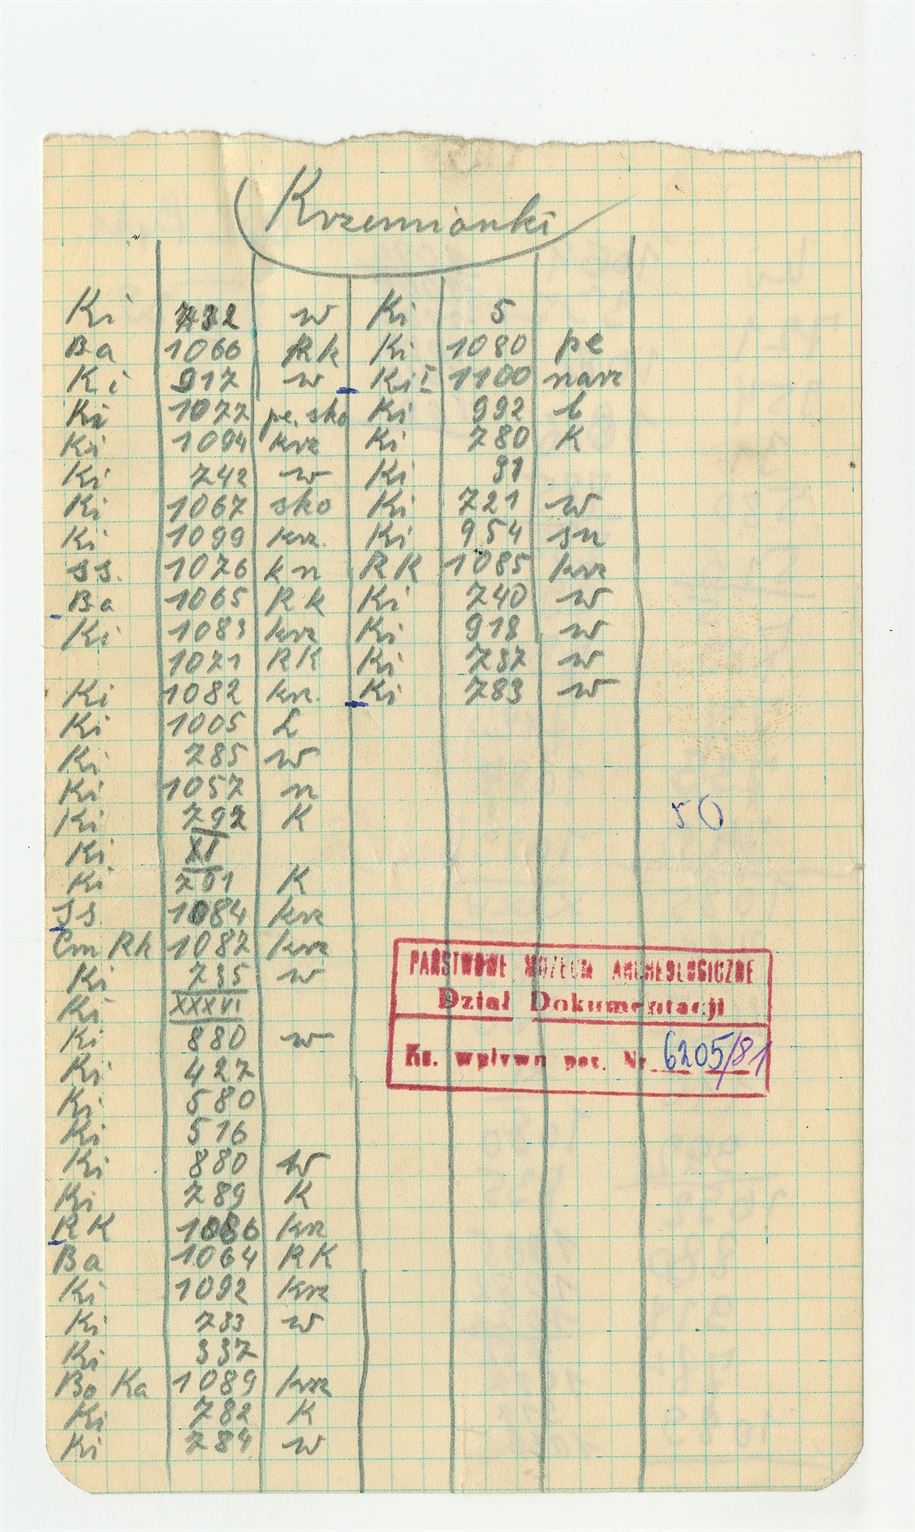 Krzemionki
Ki 732 w Ki 5
Ba 1066 Rk Ki 1080 pe
Ki 917 w Ki I 1100 narz
Ki 1077 pe. sko Ki 992 b
Ki 1094 krz Ki 780 K
Ki 742 w Ki 91
Ki 1067 sko Ki 721 w
Ki 1099 krz. Ki 954 sn
SS. 1076 kn RK 1085 krz
Ba 1065 Rk Ki 740 w
Ki 1083 krz Ki 918 w
1071 RK Ki 737 w
Ki 1082 krz. Ki 783 w
Ki 1005 L
Ki 785 w
Ki 1057 n
Ki 792 K
Ki XI
Ki 701 K
SS. 1084 krz
Cm Rk 1087 krz
Ki 735 w
Ki XXXVI
Ki 880 w
Ki 427
Ki 580
Ki 516
Ki 880 w
Ki 789 K
RK 1086 krz
Ba 1064 RK
Ki 1092 krz
Ki 733 w
Ki 337
Bo Ka 1089 krz
Ki 782 K
Ki 784 w
50
PAŃSTWOWE MUZEUM ARCHEOLOGICZNE
Dział Dokumentacji
Ks. wpływu poz. Nr. 6205/81